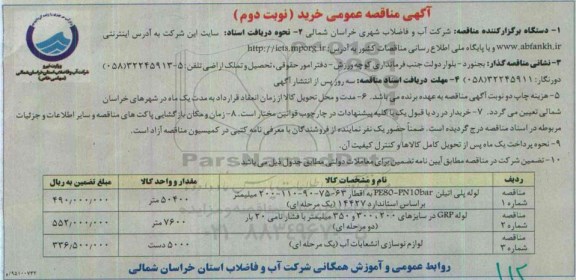 آگهی مناقصه عمومی خرید ( نوبت دوم )
۱- دستگاه برگزارکننده مناقصه: شرکت آب و فاضلاب شهری خراسان شمالی ۲- نحوه دریافت اسناد: سایت این شرکت به آدرس اینترنتی
www.abfankh.ir و یا پایگاه ملی اطلاع رسانی مناقصات کشور به آدرس: http://iets.mporg.ir
۳- نشانی مناقصه گذار: بجنورد - بلوار دولت جنب فرمانداری کوچه ورزش - دفتر امور حقوقی، تحصیل و تملک اراضی تلفن: ۵-۳۲۲۴۵۹۱۳(۰۵۸)
دورنگار: ۳۲۲۴۵۹۱۱(۰۵۸) ۴- مهلت دریافت اسناد مناقصه: سه روز پس از انتشار آگهی
۵- هزینه چاپ دو نوبت آگهی مناقصه به عهده برنده می باشد. ۶- مدت و محل تحویل کالا از زمان انعقاد قرارداد به مدت یک ماه در شهرهای خراسان
شمالی تعیین می گردد. ۷- خریدار در رد یا قبول یک یا کلیه پیشنهادات در چارچوب قوانین مختار است. ۸- زمان و مکان بازگشایی پاکت های مناقصه و سایر اطلاعات و جزئیات
مربوطه در اسناد مناقصه درج گردیده است. ضمناً حضور یک نفر نماینده از فروشندگان با معرفی نامه کتبی در کمیسیون مناقصه آزاد است.
۹- نحوه پرداخت یک ماه پس از تحویل کامل کالاها و کنترل کیفیت آن.
۱۰- تضمین شرکت در مناقصه مطابق آیین نامه تضمین برای معاملات دولتی مطابق جدول ذیل می باشد
ردیف نام و مشخصات کالا مقدار و واحد کالا مبلغ تضمین به ریال
مناقصه شماره ۱ لوله پلی اتیلن PE80-PN10bar به اقطار ۶۳-۷۵-۹۰-۱۱۰-۲۰۰ میلیمتر بر اساس استاندارد ۱۴۴۲۷ (یک مرحله ای) ۵۰۴۰۰ متر ۴۹۰/۰۰۰/۰۰۰
مناقصه شماره ۲ لوله GRP در سایزهای ۲۰۰، ۳۰۰ و ۳۵۰ میلیمتر با فشار نامی ۲۰ بار (دو مرحله ای) ۷۶۰۰ متر ۵۵۲/۰۰۰/۰۰۰
مناقصه شماره ۳ لوازم نوسازی انشعابات آب (یک مرحله ای) ۵۰۰۰ دست ۳۳۶/۵۰۰/۰۰۰
روابط عمومی و آموزش همگانی شرکت آب و فاضلاب استان خراسان شمالی